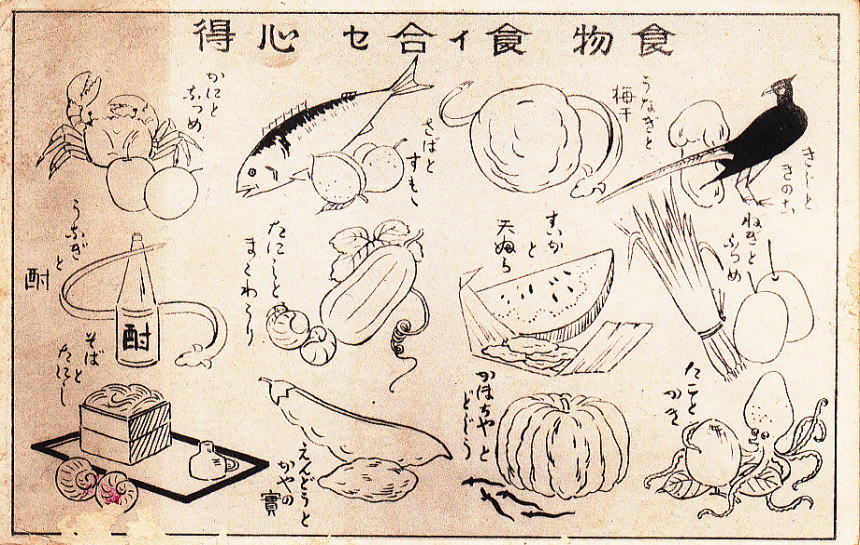 食物 食イ合セ 心得
きじと
きのこ
うなぎと
梅干
さばと
すもゝ
かにと
なつめ
ねぎと
なつめ
すいか
と
天ぷら
たにしと
まくわうり
うなぎと
酎
酎
たこと
かき
かぼちやと
えんどうと
かやの
實
そばと
たにし